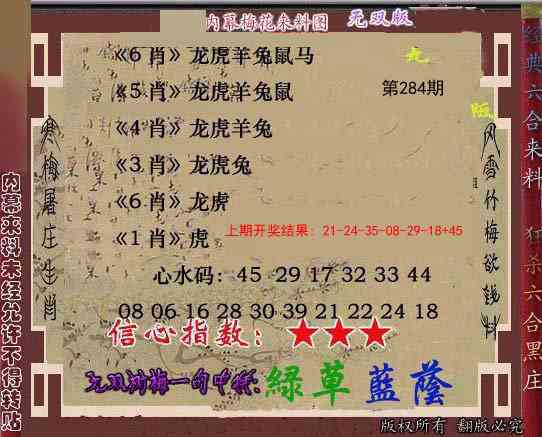 内幕梅花来料图 无双版
《6肖》龙虎羊兔鼠马
九
《5肖》龙虎羊兔鼠
第284期
版
《4肖》龙虎羊兔
《3肖》龙虎兔
《6肖》龙虎
上期开奖结果：21-24-35-08-29-18+45
《1肖》虎
心水码：45 29 17 32 33 44
08 06 16 28 30 39 21 22 24 18
信心指数：★★★
无双浏梅一句中特:緑草藍蔭
寒梅屠庄生肖
风雪竹梅欲钱料
内幕来料未经允许不得转贴
经典六合来料 狂杀六合黑庄
版权所有 翻版必究